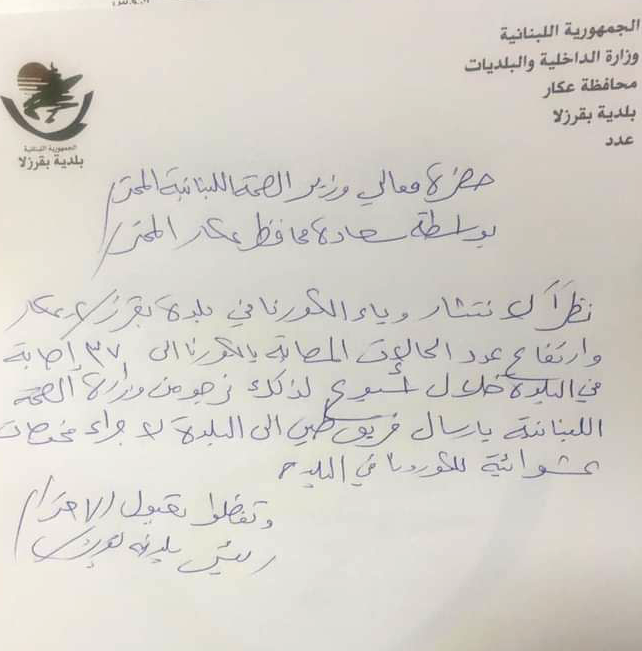 الجمهورية اللبنانية
وزارة الداخلية والبلديات
محافظة عكار
بلدية بقرزلا
عدد
الجمهورية اللبنانية
بلدية بقرزلا
حضرة معالي وزير الصحة اللبنانية المحترم
بواسطة سعادة محافظ عكار المحترم
نظراً لانتشار وباء الكورنا في بلدة بقرزلا عكار
وارتفاع عدد الحالات المصابة بالكورنا الى ٣٧ إصابة
في البلدة خلال أسبوع لذلك نرجو من وزارة الصحة
اللبنانية بارسال فريق طبي الى البلدة لاجراء فحوصات
عشوائية للكورونا في البلدة
وتفضلوا بقبول الاحترام
رئيس بلدية